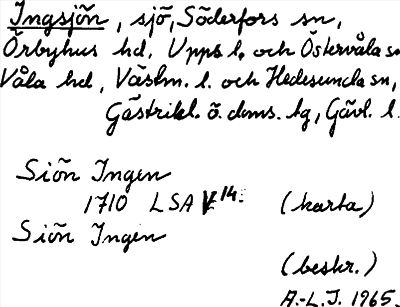 Ingsjön, sjö, Söderfors sn,
Örbyhus hd, Upps l. och Östervåla sn,
Våla hd, Västm. l. och Hedesunda sn,
Gästrikl. ö. doms. tg, Gävl. l.
Siön Ingen
1710 LSA V 14: (karta)
Siön Ingen
(beskr.)
A.-L. J. 1965.